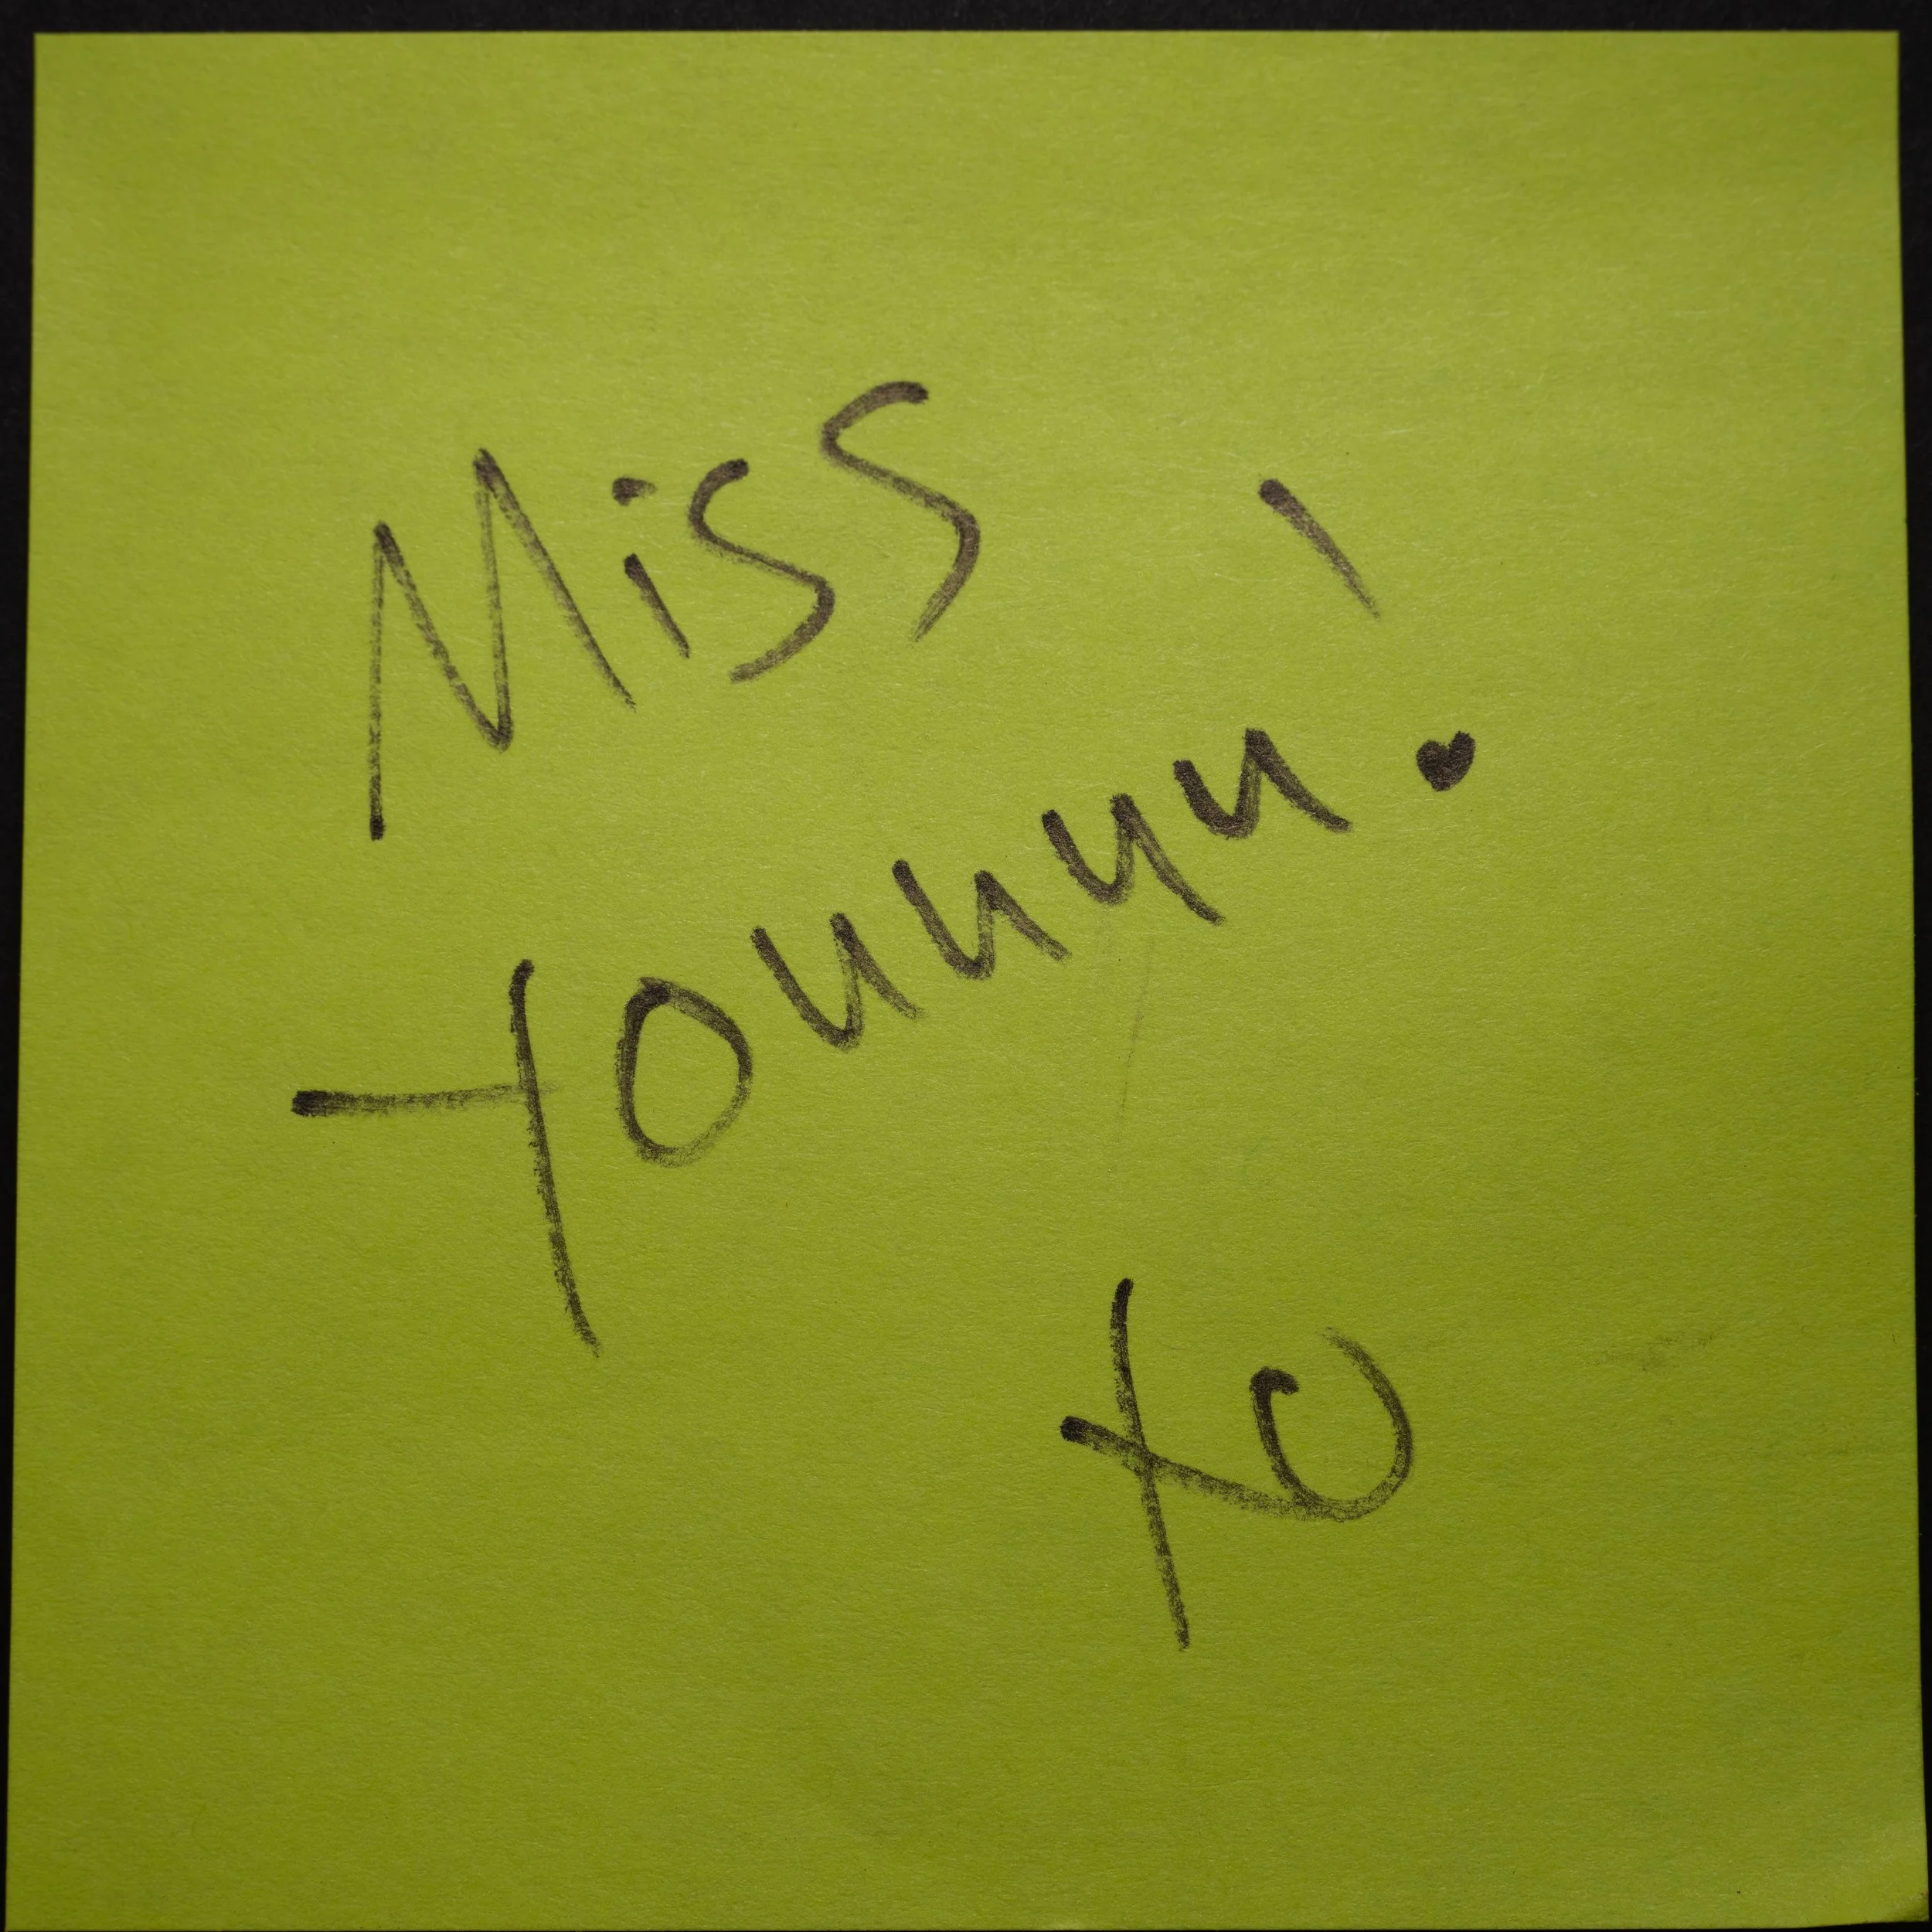 Miss
Youuuu!
XO